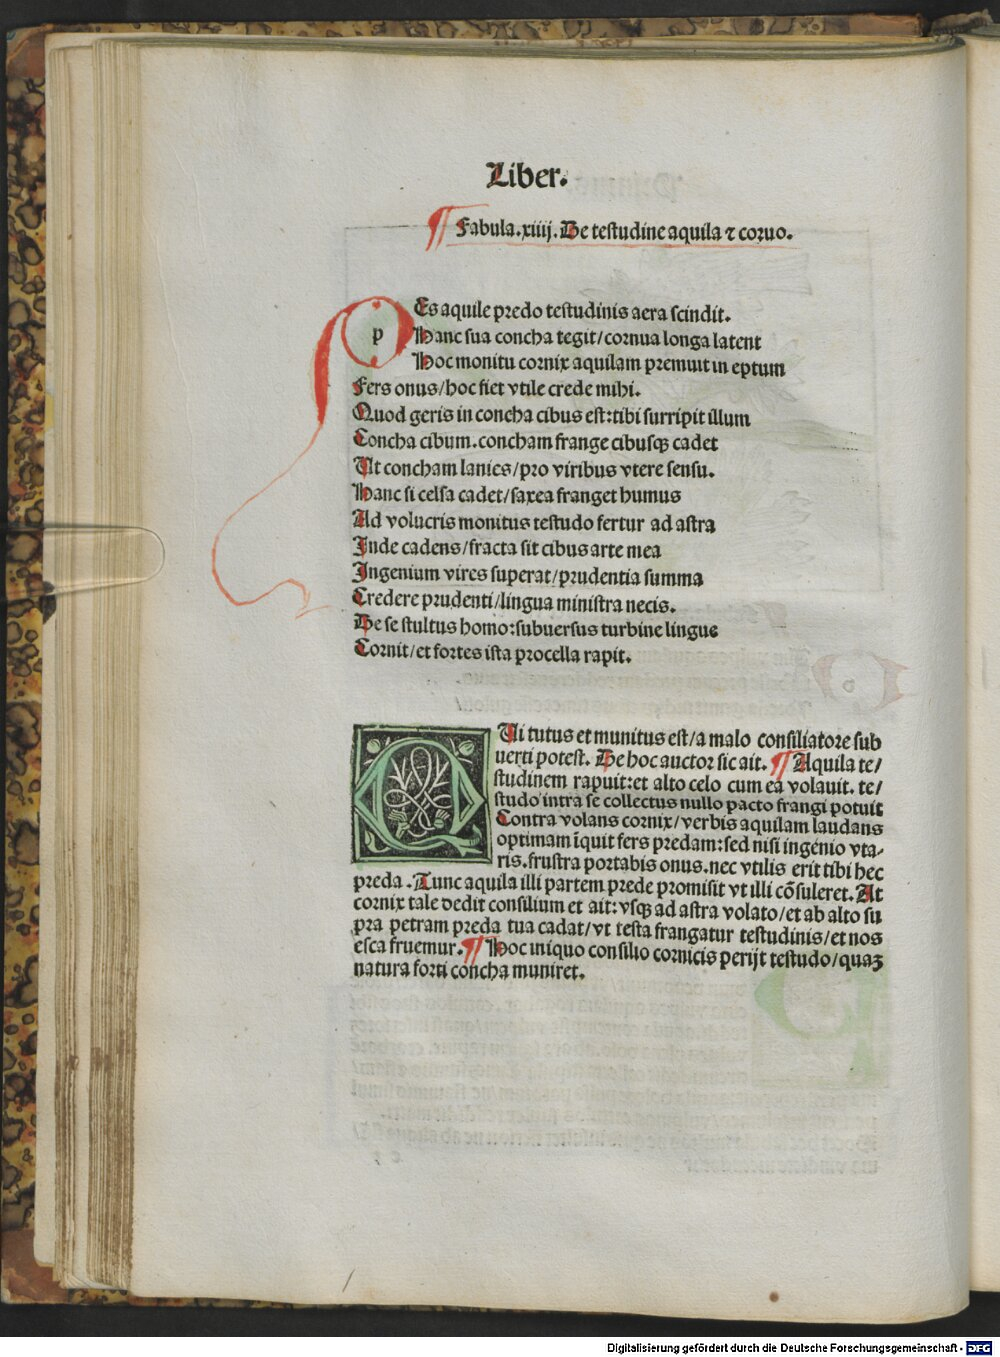 Liber.
¶ Fabula.xiiij. De testudine aquila ⁊ coruo.
pEs aquile predo testudinis aera scindit.
Hanc sua concha tegit/cornua longa latent
Hoc monitu cornix aquilam premuit in eptum
Fers onus/hoc fiet vtile crede mihi.
Quod geris in concha cibus est:tibi surripit illum
Concha cibum.concham frange cibusqꝫ cadet
Ut concham lanies/pro viribus vtere sensu.
Hanc si celsa cadet/saxea franget humus
Ad volucris monitus testudo fertur ad astra
Inde cadens/fracta sit cibus arte mea
Ingenium vires superat/prudentia summa
Credere prudenti/lingua ministra necis.
De se stultus homo:subuersus turbine lingue
Cornit/et fortes ista procella rapit.
QUi tutus et munitus est/a malo consiliatore sub
uerti potest. De hoc auctor sic ait. ¶ Aquila te/
studinem rapuit:et alto celo cum ea volauit. te/
studo intra se collectus nullo pacto frangi potuit
Contra volans cornix/verbis aquilam laudans
optimam īquit fers predam:sed nisi ingenio vta-
ris.frustra portabis onus.nec vtilis erit tibi hec
preda. Tunc aquila illi partem prede promisit vt illi cōsuleret. At
cornix tale dedit consilium et ait:vsqꝫ ad astra volato/et ab alto su
pra petram preda tua cadat/vt testa frangatur testudinis/et nos
esca fruemur. ¶ Hoc iniquo consilio cornicis perijt testudo/quaꝫ
natura forti concha muniret.
Digitalisierung gefördert durch die Deutsche Forschungsgemeinschaft - DFG